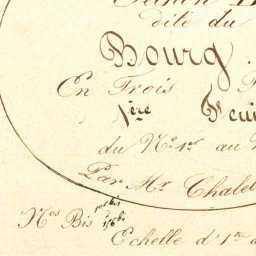 dite du
Bourg.
En Trois F
1ère Feui
du No. 1er au
Par Mr Chalet
Nos Bis
Echelle d'1 a